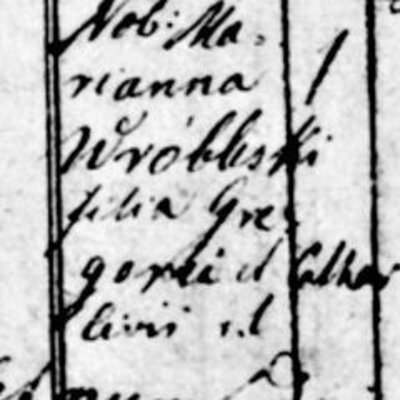 Nob: Ma-
rianna
Wróbleski
filia Gre-
gorii et Cathar